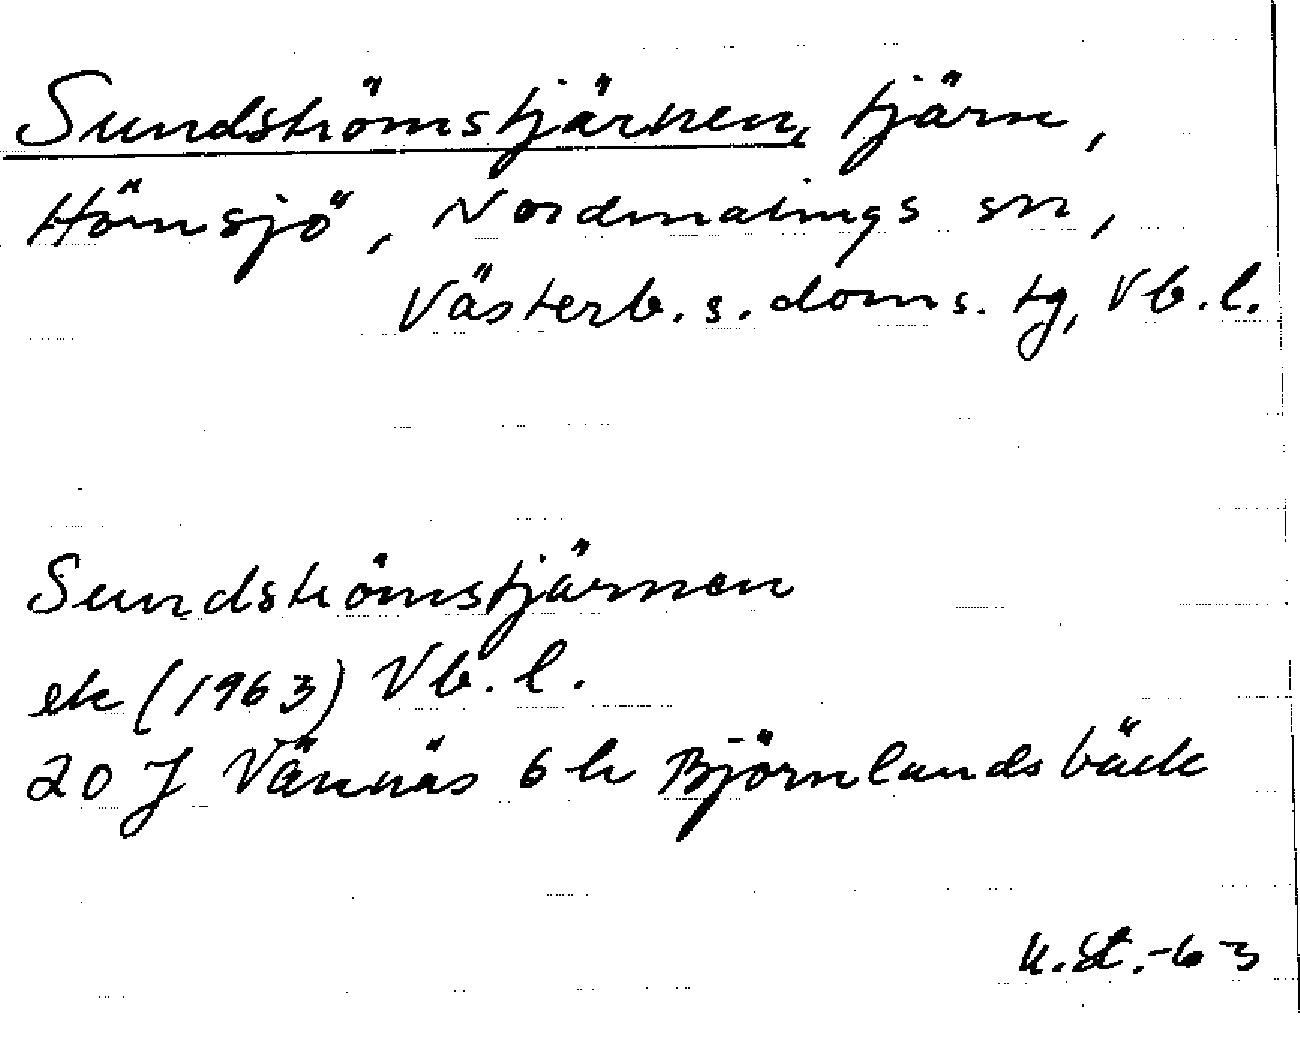 Sundströmstjärnen, tjärn,
Hörnsjö, Nordmalings sn,
Västerb. s. doms. tg, Vb. l.
Sundströmstjärnen
ek (1963) Vb. l.
20 J Vännäs 6 h Björnlandsbäck
K.St.-63